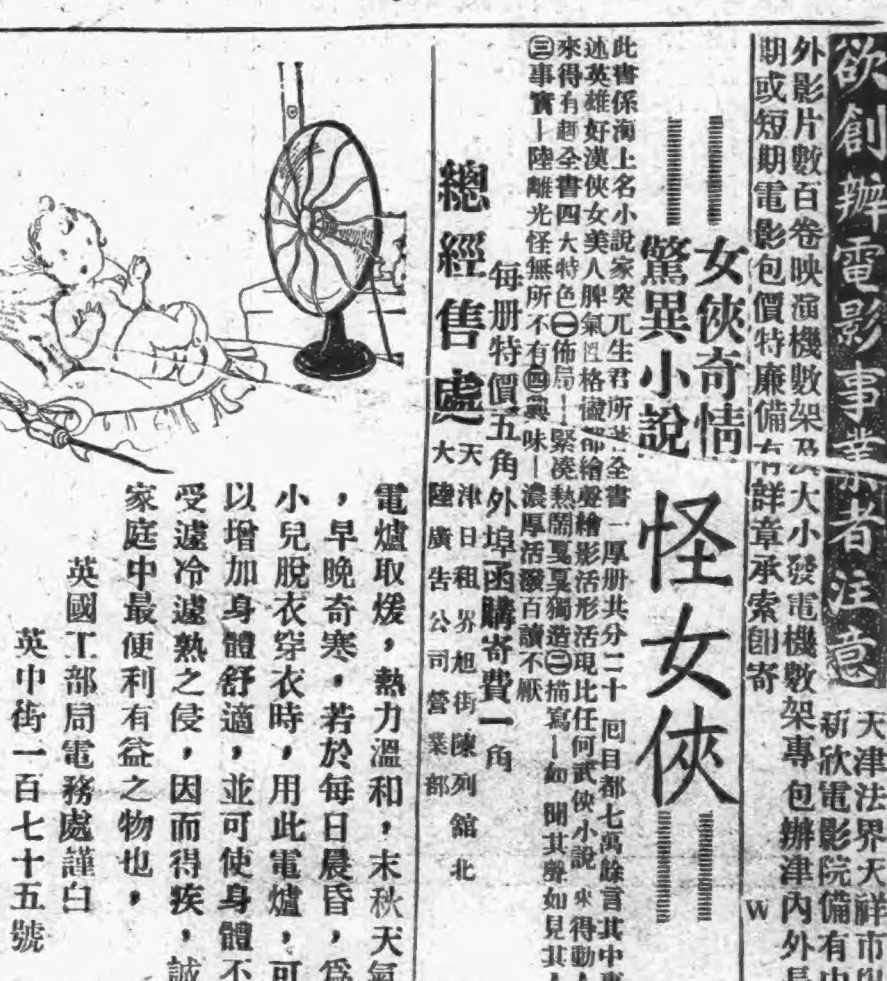 欲創辦電影事業者注意
天津法界天祥市
新欣電影院備有
外影片數百卷映演機數架及大小發電機數架專包辦津內外長
期或短期電影包價特廉備有詳章承索卽寄
W
女俠奇情
驚異小說
怪女俠
此書係海上名小說家突兀生君所著全書一厚册共分二十回目都七萬餘言其中
述英雄好漢俠女美人脾氣性格儘都繪聲繪影活形活現比任何武俠小說來得動
來得有趣全書四大特色㊀佈局—緊凑熱鬧戛戛獨造㊁描寫—如聞其聲如見其
㊂事實—陸離光怪無所不有㊃興味—濃厚活潑百讀不厭
每册特價五角外埠函購寄費一角
總經售處
天津日租界旭街陳列舘北
大陸廣告公司營業部
電爐取煖，熱力溫和，末秋天氣
，早晚奇寒，若於每日晨昏，爲
小兒脫衣穿衣時，用此電爐，可
以增加身體舒適，並可使身體不
受遽冷遽熱之侵，因而得疾，誠
家庭中最便利有益之物也，
英國工部局電務處謹白
英中街一百七十五號